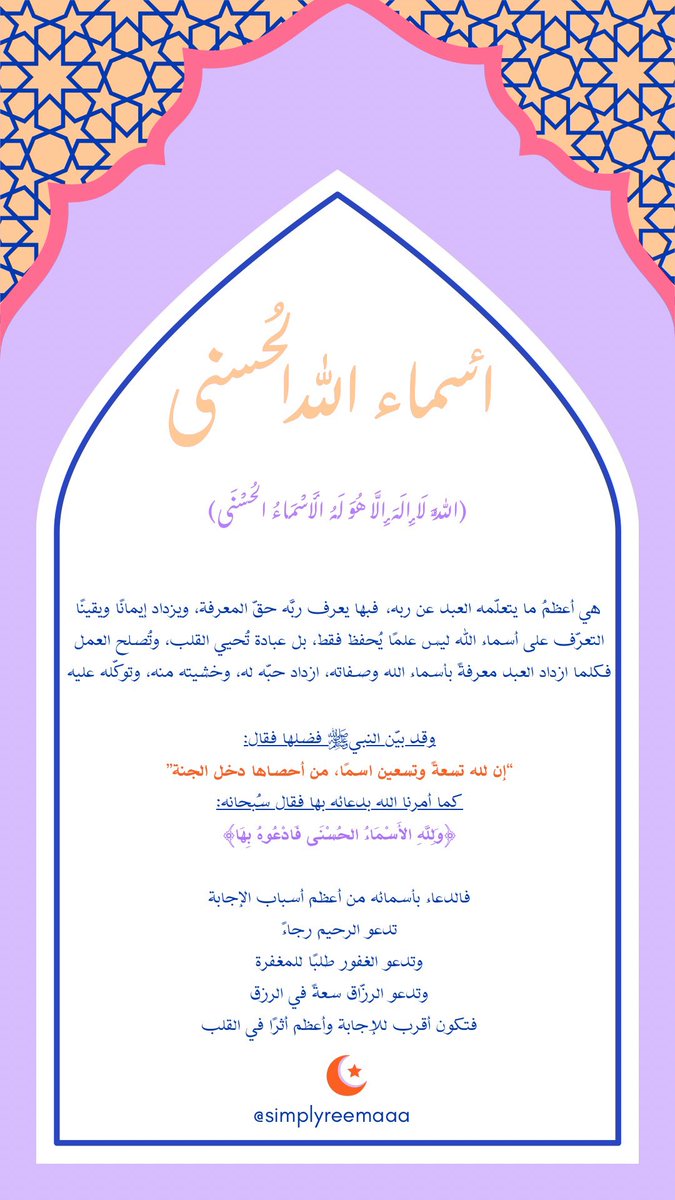 أسماء الله الحُسنى
(اللَّهُ لَا إِلَهَ إِلَّا هُوَ لَهُ الْأَسْمَاءُ الْحُسْنَى)
هي أعظمُ ما يتعلّمه العبد عن ربه، فبها يعرف ربَّه حقّ المعرفة، ويزداد إيمانًا ويقينًا
التعرّف على أسماء الله ليس علمًا يُحفظ فقط، بل عبادة تُحيي القلب، وتُصلح العمل
فكلما ازداد العبد معرفةً بأسماء الله وصفاته، ازداد حبّه له، وخشيته منه، وتوكّله عليه
وقد بيّن النبي ﷺ فضلها فقال:
“إن لله تسعةً وتسعين اسمًا، من أحصاها دخل الجنة”
كما أمرنا الله بدعائه بها فقال سُبحانه:
﴿وَلِلَّهِ الأَسْمَاءُ الحُسْنَى فَادْعُوهُ بِهَا﴾
فالدعاء بأسمائه من أعظم أسباب الإجابة
تدعو الرحيم رجاءً
وتدعو الغفور طلبًا للمغفرة
وتدعو الرزّاق سعةً في الرزق
فتكون أقرب للإجابة وأعظم أثرًا في القلب
@simplyreemaaa